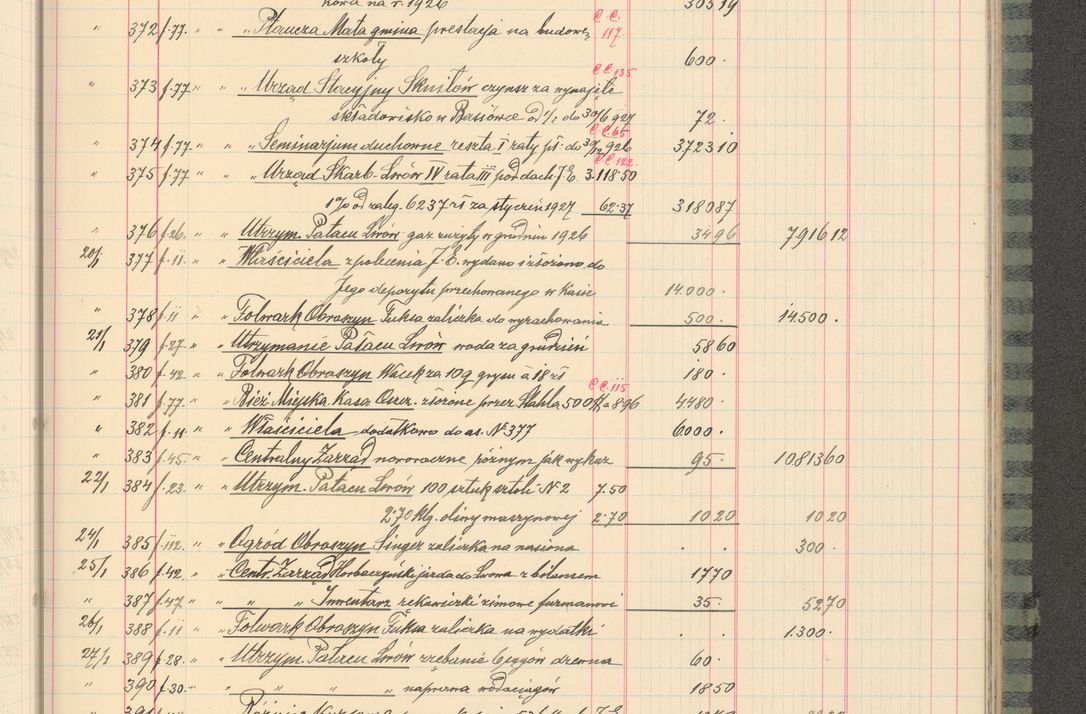 kowa na r. 1926 30519
" 372 f.77. " " " Płaucza Mała gmina prestacja na budowę C.C. 117.
szkoły 600.
" 373 f.77 " " " Urząd Stacyjny Skniłów czynsz za wynajęte C.C. 135
składowisko w Basiówce od 1/1 do 30/6 927 72.
" 374 f.77. " " " Seminarjum duchowne reszta I raty pś. do 31/12 926 C.C. 65 372310
" 375 f.77 " " Urząd Skarb. Lwów IV rata III pod dach J.E. 3.118.50 C.C. 122.
1% od zaleg. 6237 zł za styczeń 1927 62.37 318087
" 376 f.26. " " Utrzym. Pałacu Lwów gaz zużyty w grudniu 1926 3496 791612
20/1 377 f.11. " " Właściciela z polecenia J.E. wydano i złożono do
Jego depozytu przechowanego w Kasie 14.000.
" 378 f.11 " " Folwark Obroszyn Fuksa zaliczka do wyrachowania 500. 14.500.
21/1 379 f.27. " " Utrzymanie Pałacu Lwów woda za grudzień 5860
" 380 f.42. " " Folwark Obroszyn Wacek za 10 q grysu à 18 zł 180.
" 381 f.77. " " Bież. Miejska Kasa Oszcz. złożone przez Stahla 500 $ à 8.96 C.C. 115 4.480.
" 382 f.11. " " Właściciela dodatkowo do as. № 377 6000.
" 383 f.45. " " Centralny Zarząd noworoczne różnym jak wykaz 95. 1081360
22/1 384 f.23. " " Utrzym. Pałacu Lwów 100 sztuk sztoli № 2 7.50
2.70 klg. oliwy maszynowej 2.70 1020 1020
24/1 385 f.112. " " Ogród Obroszyn Singer zaliczka na nasiona . . 300.
25/1 386 f.42. " " Centr. Zarząd Horbaczyński jazda do Lwowa z bilansem 1770
" 387 f.47. " " " Inwentarz rękawiczki zimowe furmanowi 35. 5270
26/1 388 f.11 " " Folwark Obroszyn Fuksa zaliczka na wydatki . . 1.300.
27/1 389 f.28. " " Utrzym. Pałacu Lwów rżebanie drzewa 60.
" 390 f.30. " " " " " naprawa wodociągów 1850